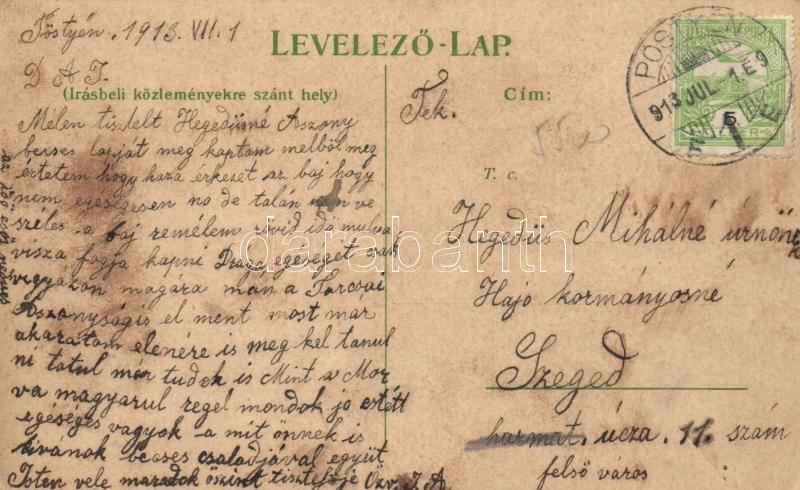 Pöstyén. 1913. VII. 1
LEVELEZŐ-LAP.
D A T.
(Irásbeli közleményekre szánt hely)
Mélen tisztelt Hegedüsné Aszony
becses lapját meg kaptam melböl meg
értetem hogy haza érkezet az baj hogy
nem egeségesen no de talán nem ve
széles a baj remélem rövid idö mulva
visza fogja kapni Draga egéseget csak
vigyazon magára mán a Tarcsai
Aszonyságis el ment most már
akaratom elenére is meg kel tanul
ni totul már tudok is Mint a Mor
va magyarul regel mondok jo estétt
egéséges vagyok a mit önnek is
kivánok becses családjával együt
Isten vele maradok öszint tisztelöje Özv. I. A
az idö esös nálunk
Cím:
Tek.
55
T. c.
Hegedüs Mihálné úrnönek
Hajó kormányosné
Szeged
harmat. úcza. 11. szám
felsö város
913 JUL. 1. E 9
MAGYAR KIR. POSTA
5
darabanth